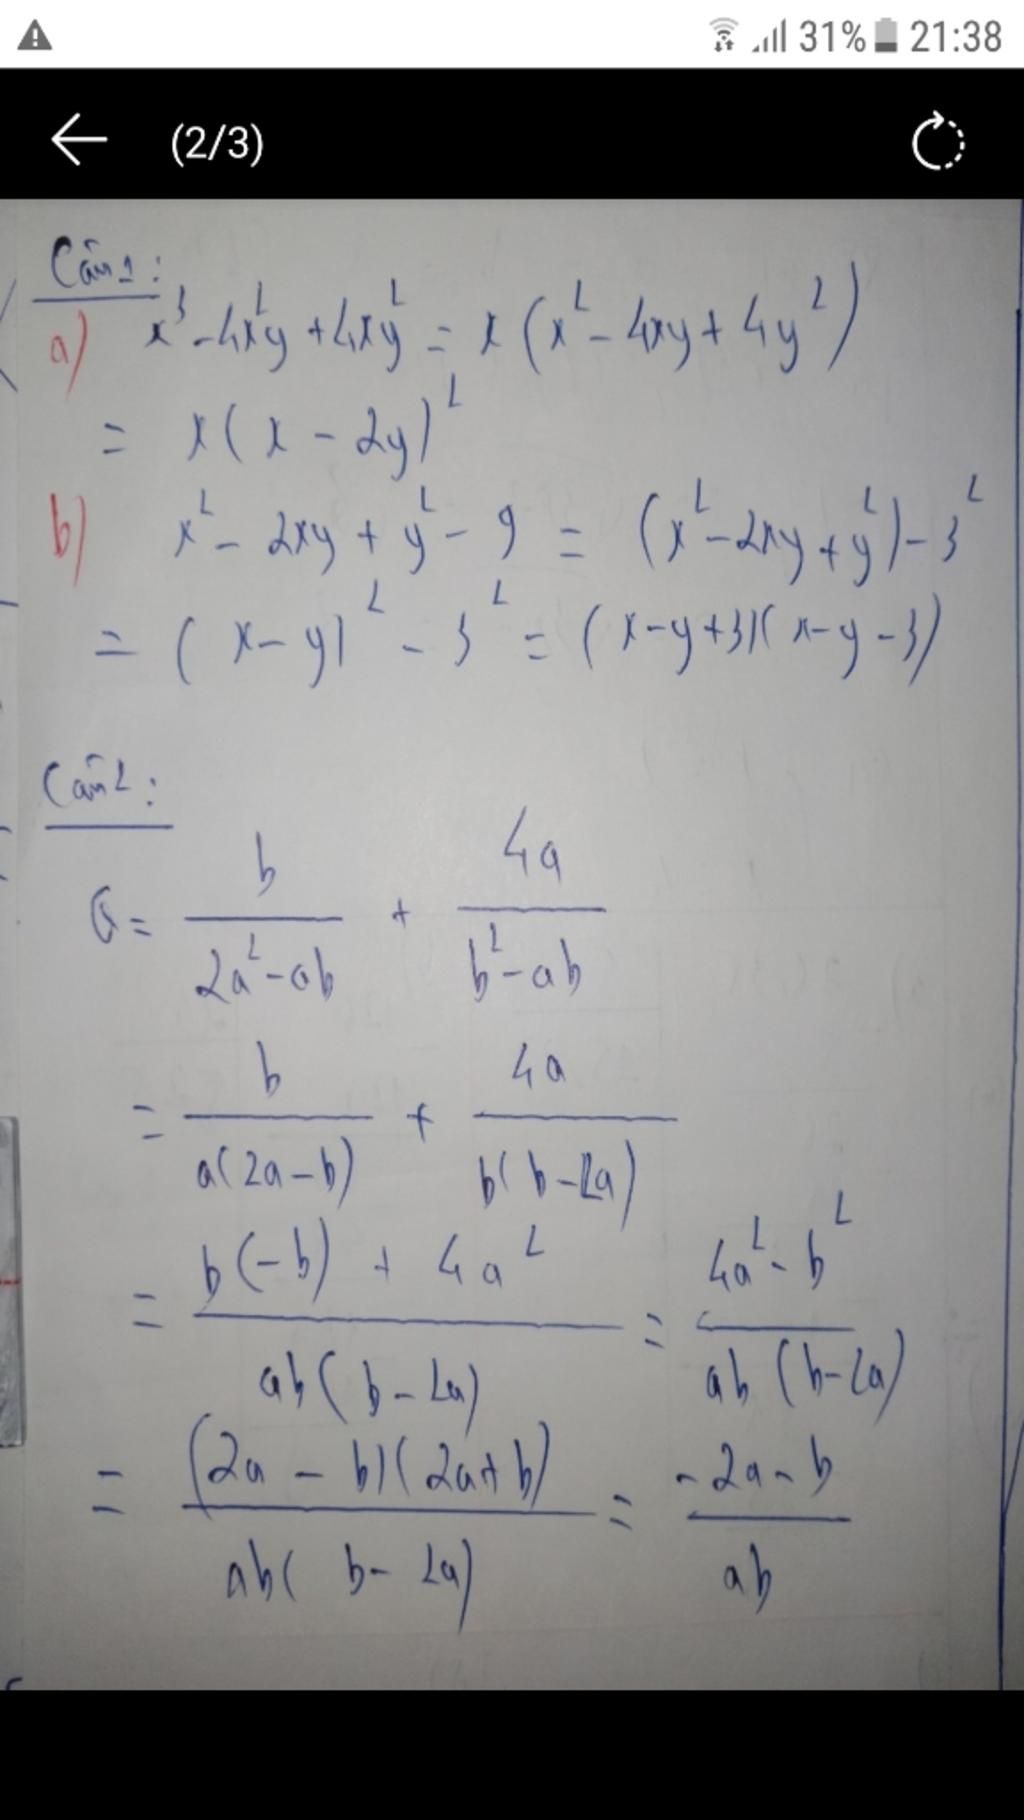 31% 21:38
(2/3)
Câu 1:
a) x³ - 4x²y + 4xy² = x (x² - 4xy + 4y²)
= x(x - 2y)²
b) x² - 2xy + y² - 9 = (x² - 2xy + y²) - 3²
= (x - y)² - 3² = (x - y + 3)(x - y - 3)
Câu 2:
Q = b/(2a² - ab) + 4a/(b² - ab)
= b/(a(2a - b)) + 4a/(b(b - 2a))
= (b(-b) + 4a²)/(ab(b - 2a)) = (4a² - b²)/(ab(b - 2a))
= ((2a - b)(2a + b))/(ab(b - 2a)) = (-2a - b)/(ab)